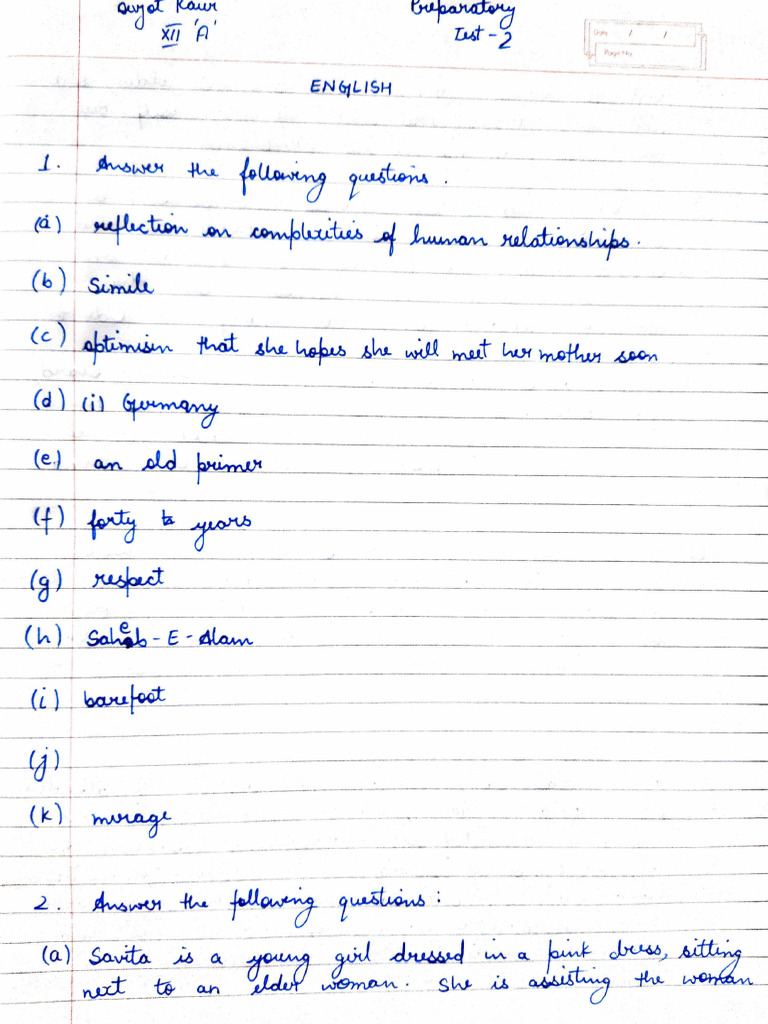 Kaur
Preparatory
XII 'A'
Test - 2
Date / /
Page No.
ENGLISH
1. Answer the following questions.
(a) reflection on complexities of human relationships.
(b) Simile
(c) optimism that she hopes she will meet her mother soon
(d) (i) Germany
(e) an old primer
(f) forty years
(g) respect
(h) Saheb - E - Alam
(i) barefoot
(j)
(k) mirage
2. Answer the following questions:
(a) Savita is a young girl dressed in a pink dress, sitting
next to an elder woman. She is assisting the woman